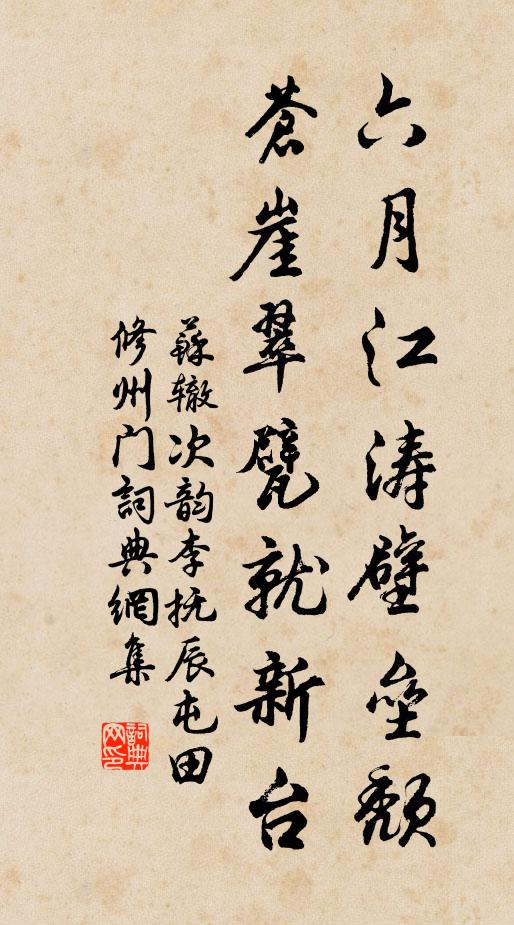 六月江涛壁垒颓
蒼崖翠甓就新台
蘇辙次韵李抚辰屯田
修州门詞典網集
詞典网印